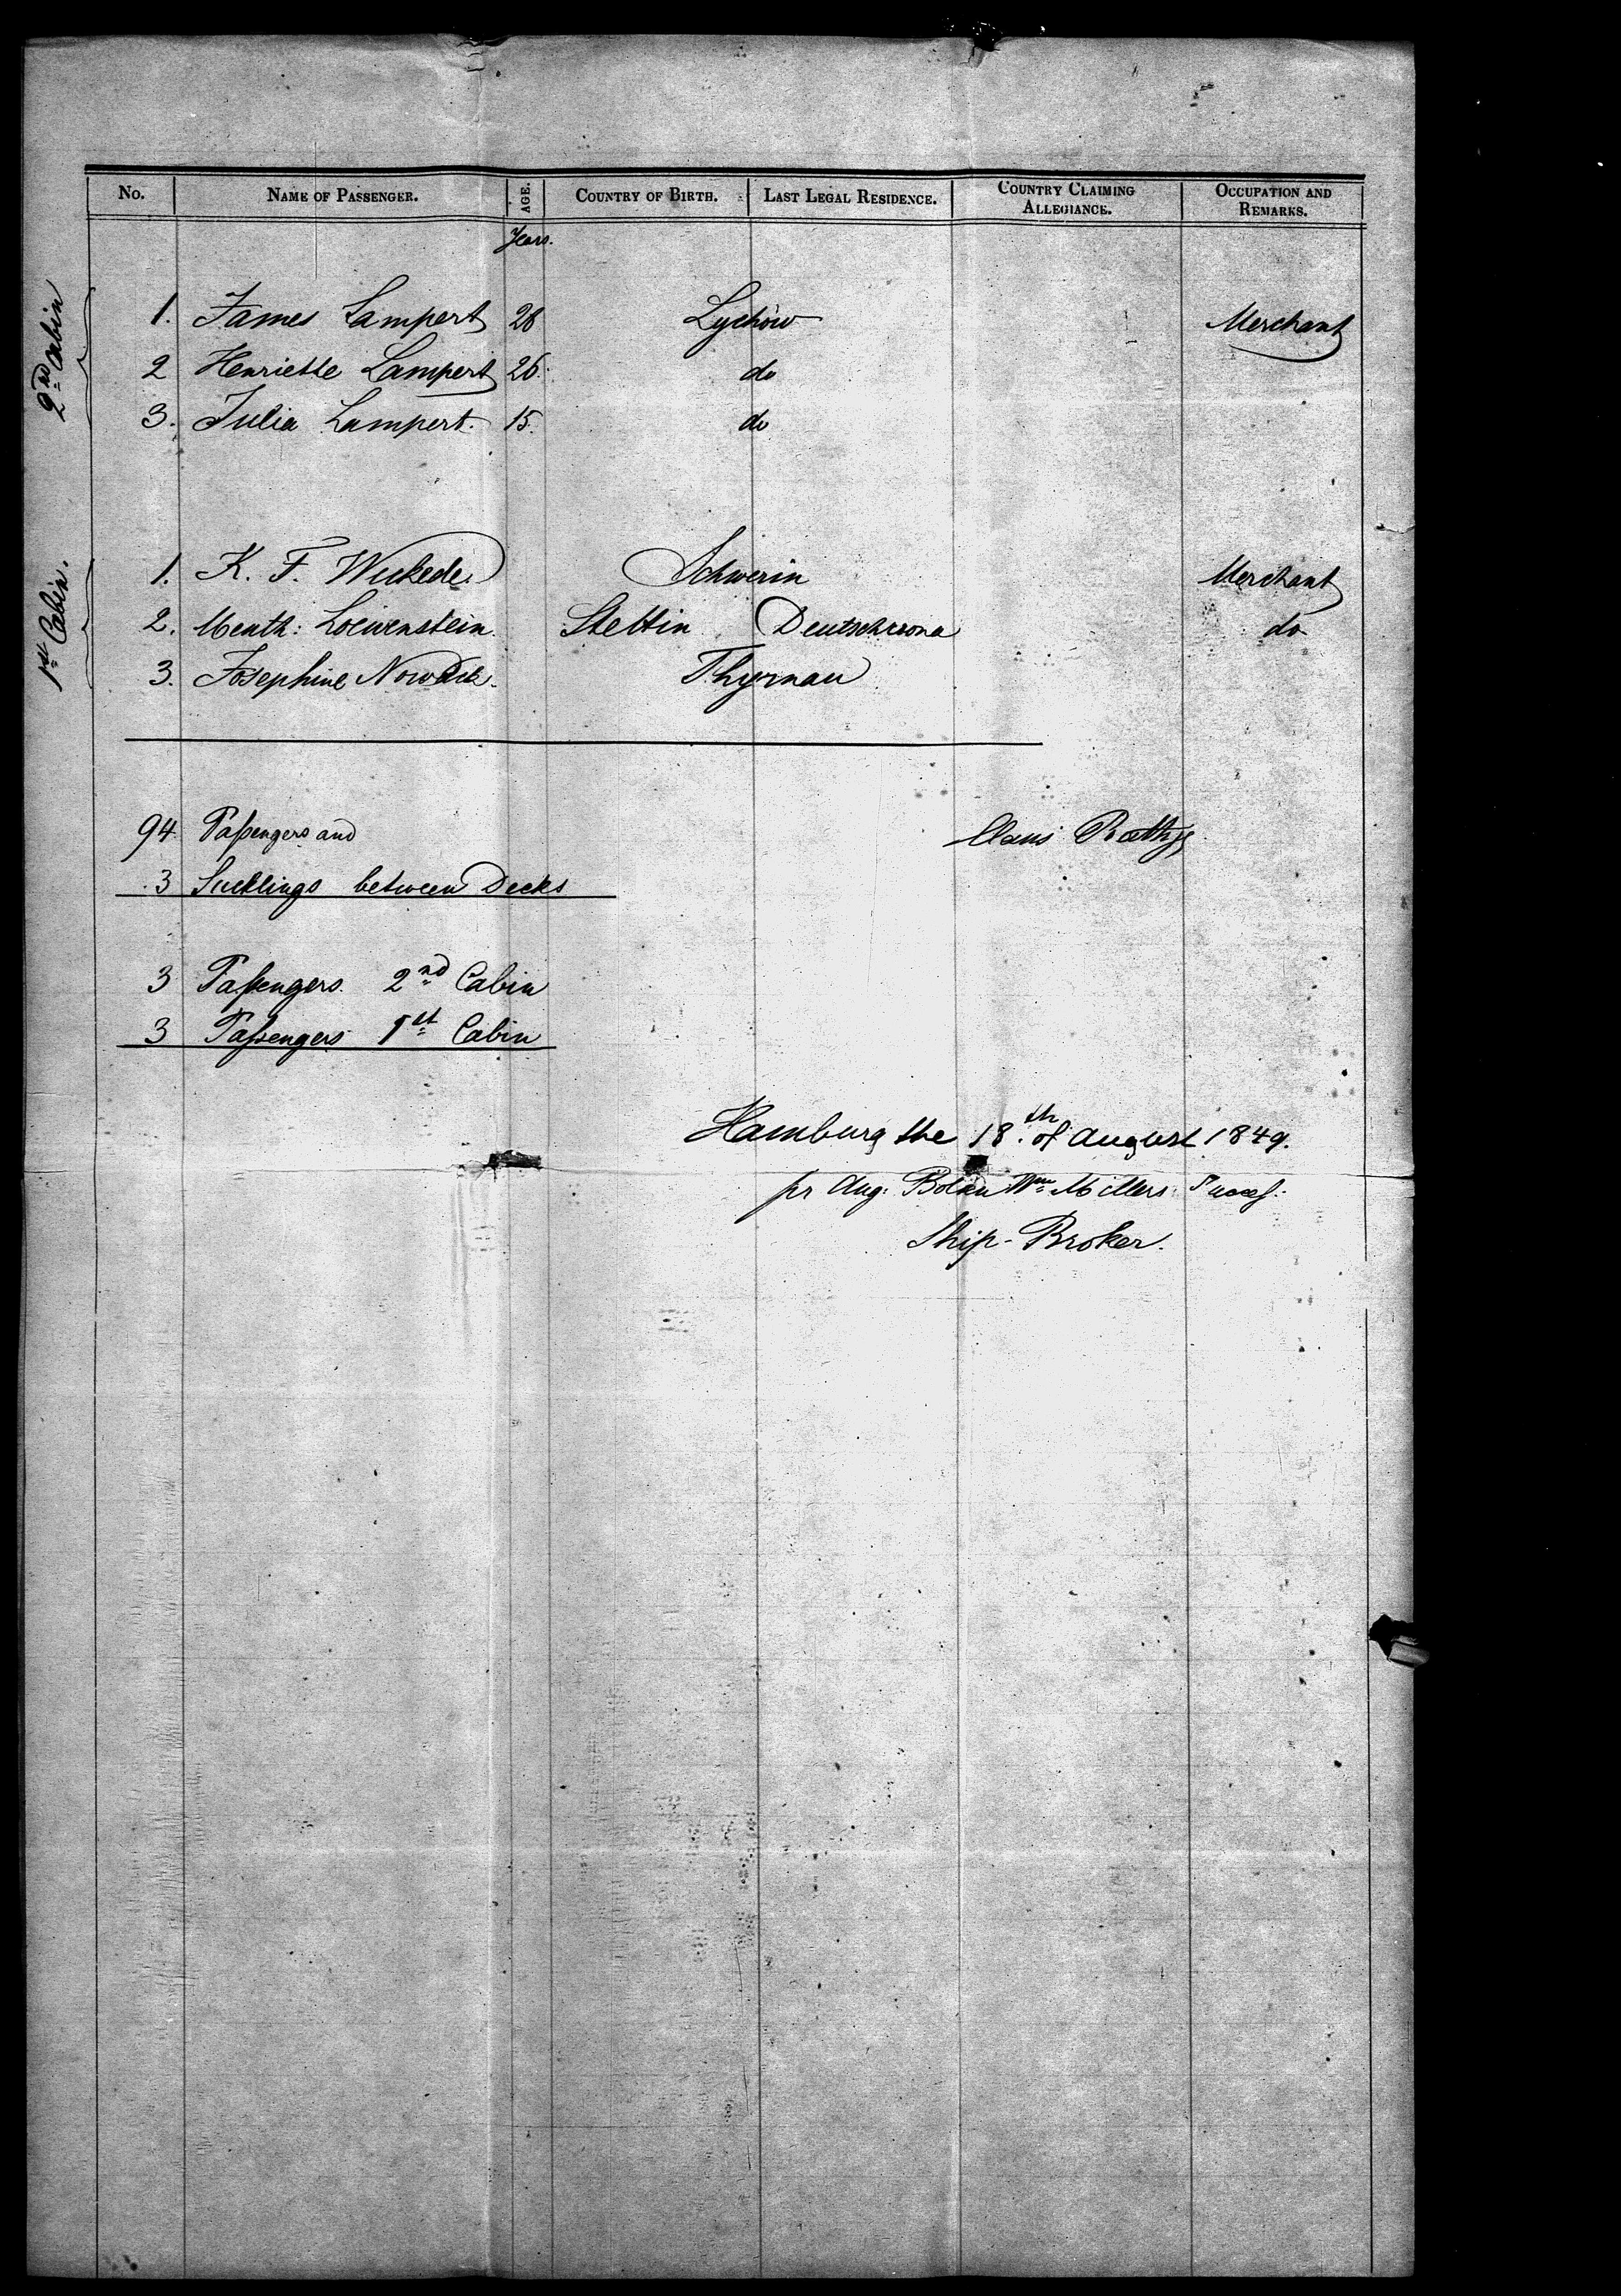 No. NAME OF PASSENGER. AGE. COUNTRY OF BIRTH. LAST LEGAL RESIDENCE. COUNTRY CLAIMING ALLEGIANCE. OCCUPATION AND REMARKS.
Years.
2nd Cabin
1. James Lampert 28 Lychow Merchant
2 Henriette Lampert 26. do
3. Julia Lampert. 15. do
1st Cabin.
1. K. F. Wickede. Schwerin Merchant
2. Menth: Loewenstein. Stettin Deutschcrona do
3. Josephine Nowack. Thyrnau
94. Passengers and Claus
3 Sucklings between Decks
3 Passengers. 2nd Cabin
3 Passengers 1st Cabin
Hamburg the 18th of August 1849.
pr Aug: Bolten Wm Millers Success:
Ship-Broker.